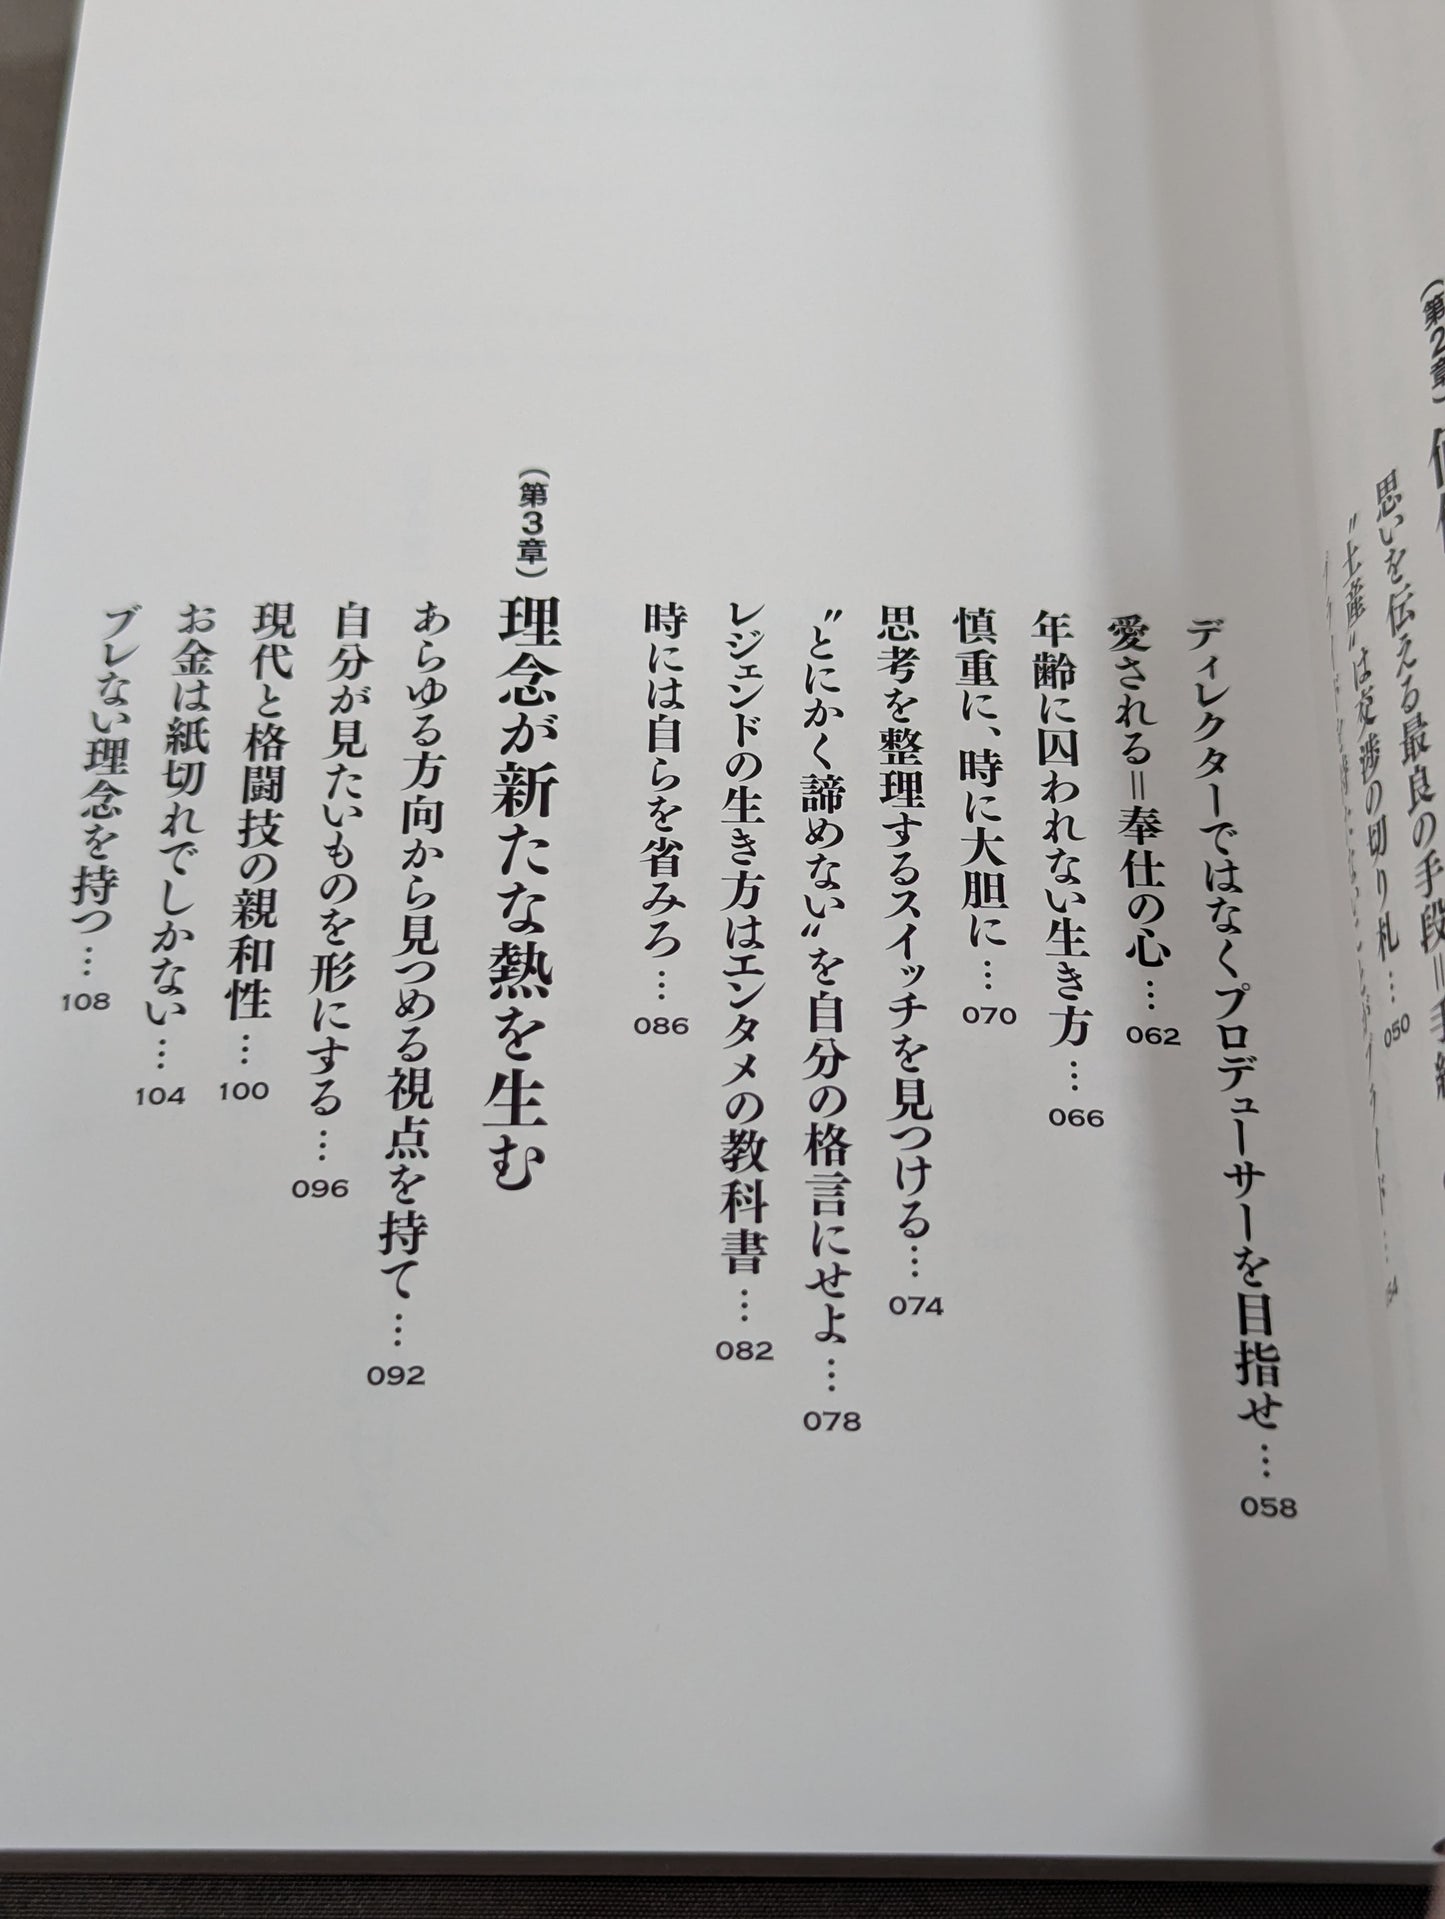 （第2章）
思いを伝える最良の手段＝手紙
〝土産〟は交渉の切り札…050
054
ディレクターではなくプロデューサーを目指せ…058
愛される＝奉仕の心…062
年齢に囚われない生き方…066
慎重に、時に大胆に…070
思考を整理するスイッチを見つける…074
〝とにかく諦めない〟を自分の格言にせよ…078
レジェンドの生き方はエンタメの教科書…082
時には自らを省みろ…086
（第3章）理念が新たな熱を生む
あらゆる方向から見つめる視点を持て…092
自分が見たいものを形にする…096
現代と格闘技の親和性…100
お金は紙切れでしかない…104
ブレない理念を持つ…108